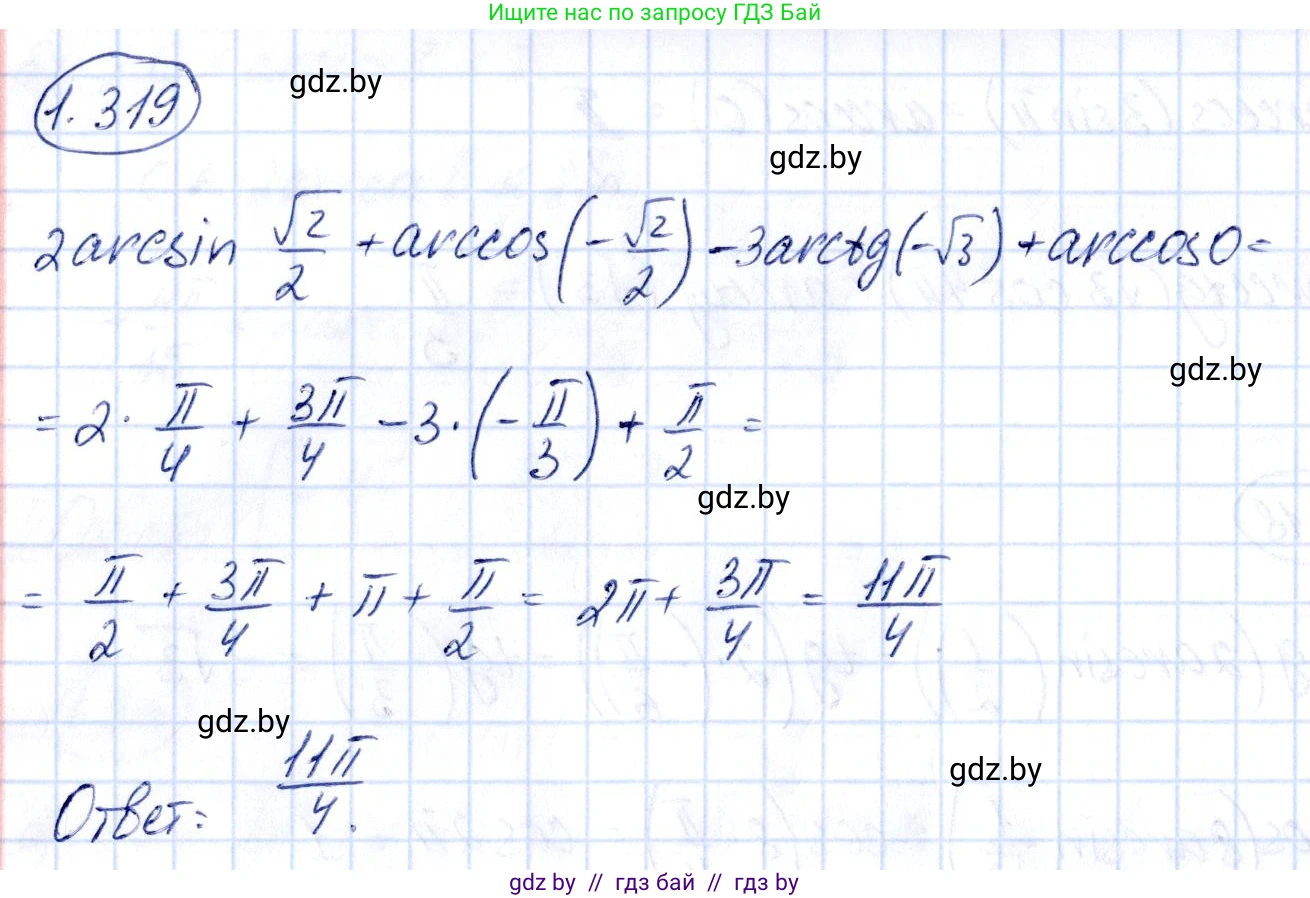 Ищите нас по запросу ГДЗ Бай
1.319
gdz.by
gdz.by
2arcsin √2/2 + arccos(-√2/2) - 3arctg(-√3) + arccos0 =
gdz.by
= 2 · π/4 + 3π/4 - 3 · (-π/3) + π/2 =
gdz.by
= π/2 + 3π/4 + π + π/2 = 2π + 3π/4 = 11π/4
gdz.by
Ответ: 11π/4.
gdz.by
gdz by // гдз бай // гдз by